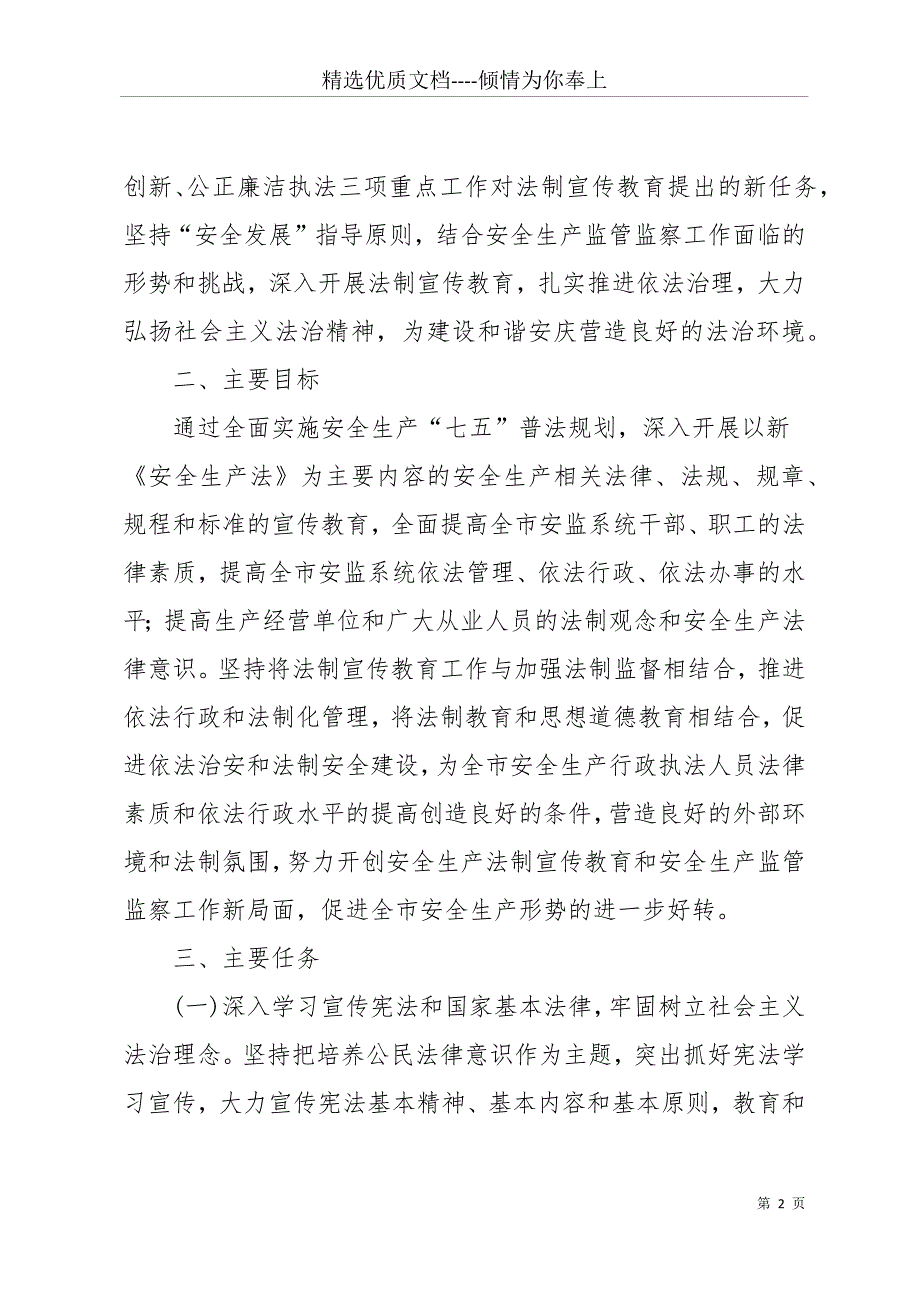 精选优质文档----倾情为你奉上
创新、公正廉洁执法三项重点工作对法制宣传教育提出的新任务，
坚持“安全发展”指导原则，结合安全生产监管监察工作面临的
形势和挑战，深入开展法制宣传教育，扎实推进依法治理，大力
弘扬社会主义法治精神，为建设和谐安庆营造良好的法治环境。
二、主要目标
通过全面实施安全生产“七五”普法规划，深入开展以新
《安全生产法》为主要内容的安全生产相关法律、法规、规章、
规程和标准的宣传教育，全面提高全市安监系统干部、职工的法
律素质，提高全市安监系统依法管理、依法行政、依法办事的水
平；提高生产经营单位和广大从业人员的法制观念和安全生产法
律意识。坚持将法制宣传教育工作与加强法制监督相结合，推进
依法行政和法制化管理，将法制教育和思想道德教育相结合，促
进依法治安和法制安全建设，为全市安全生产行政执法人员法律
素质和依法行政水平的提高创造良好的条件，营造良好的外部环
境和法制氛围，努力开创安全生产法制宣传教育和安全生产监管
监察工作新局面，促进全市安全生产形势的进一步好转。
三、主要任务
(一)深入学习宣传宪法和国家基本法律，牢固树立社会主义
法治理念。坚持把培养公民法律意识作为主题，突出抓好宪法学
习宣传，大力宣传宪法基本精神、基本内容和基本原则，教育和
第 2 页